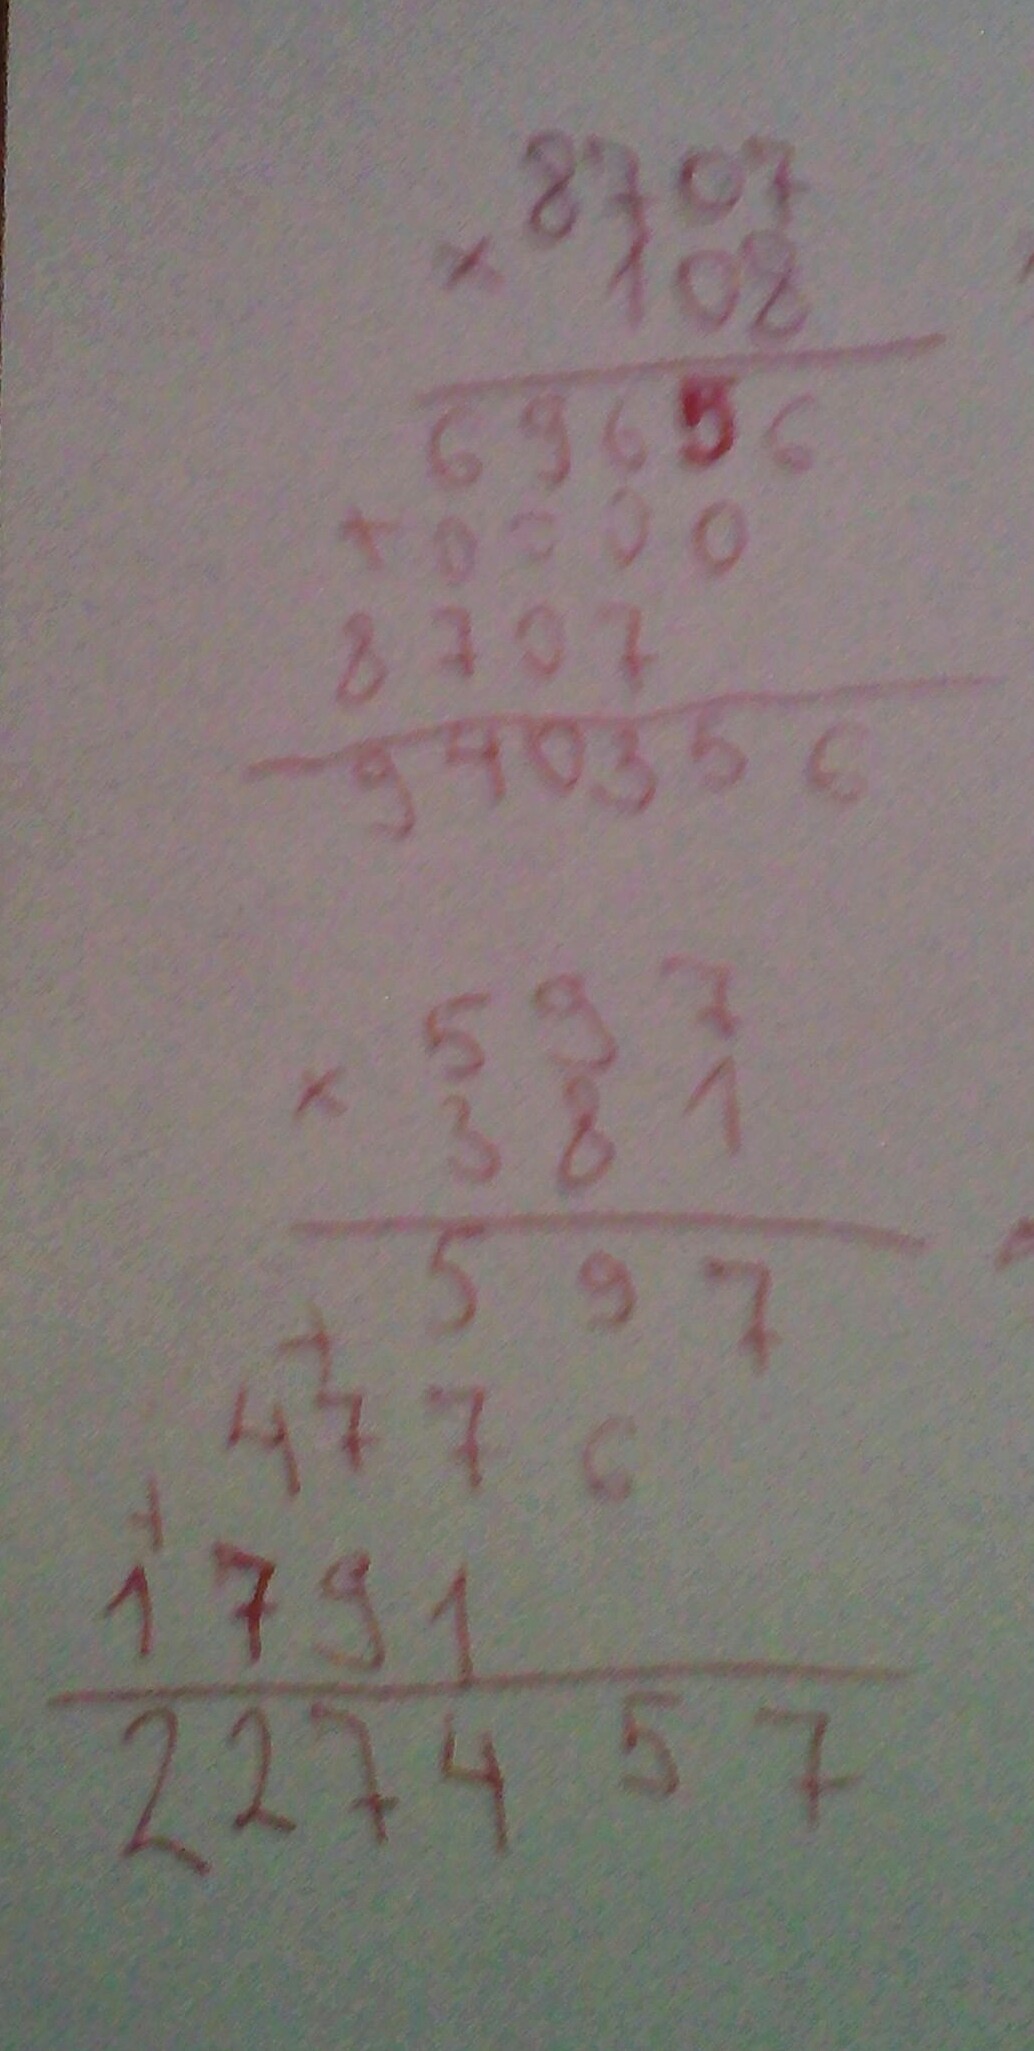 8707
× 108
69656
+ 0000
8707
940356
597
× 381
597
+
4776
+
1791
227457